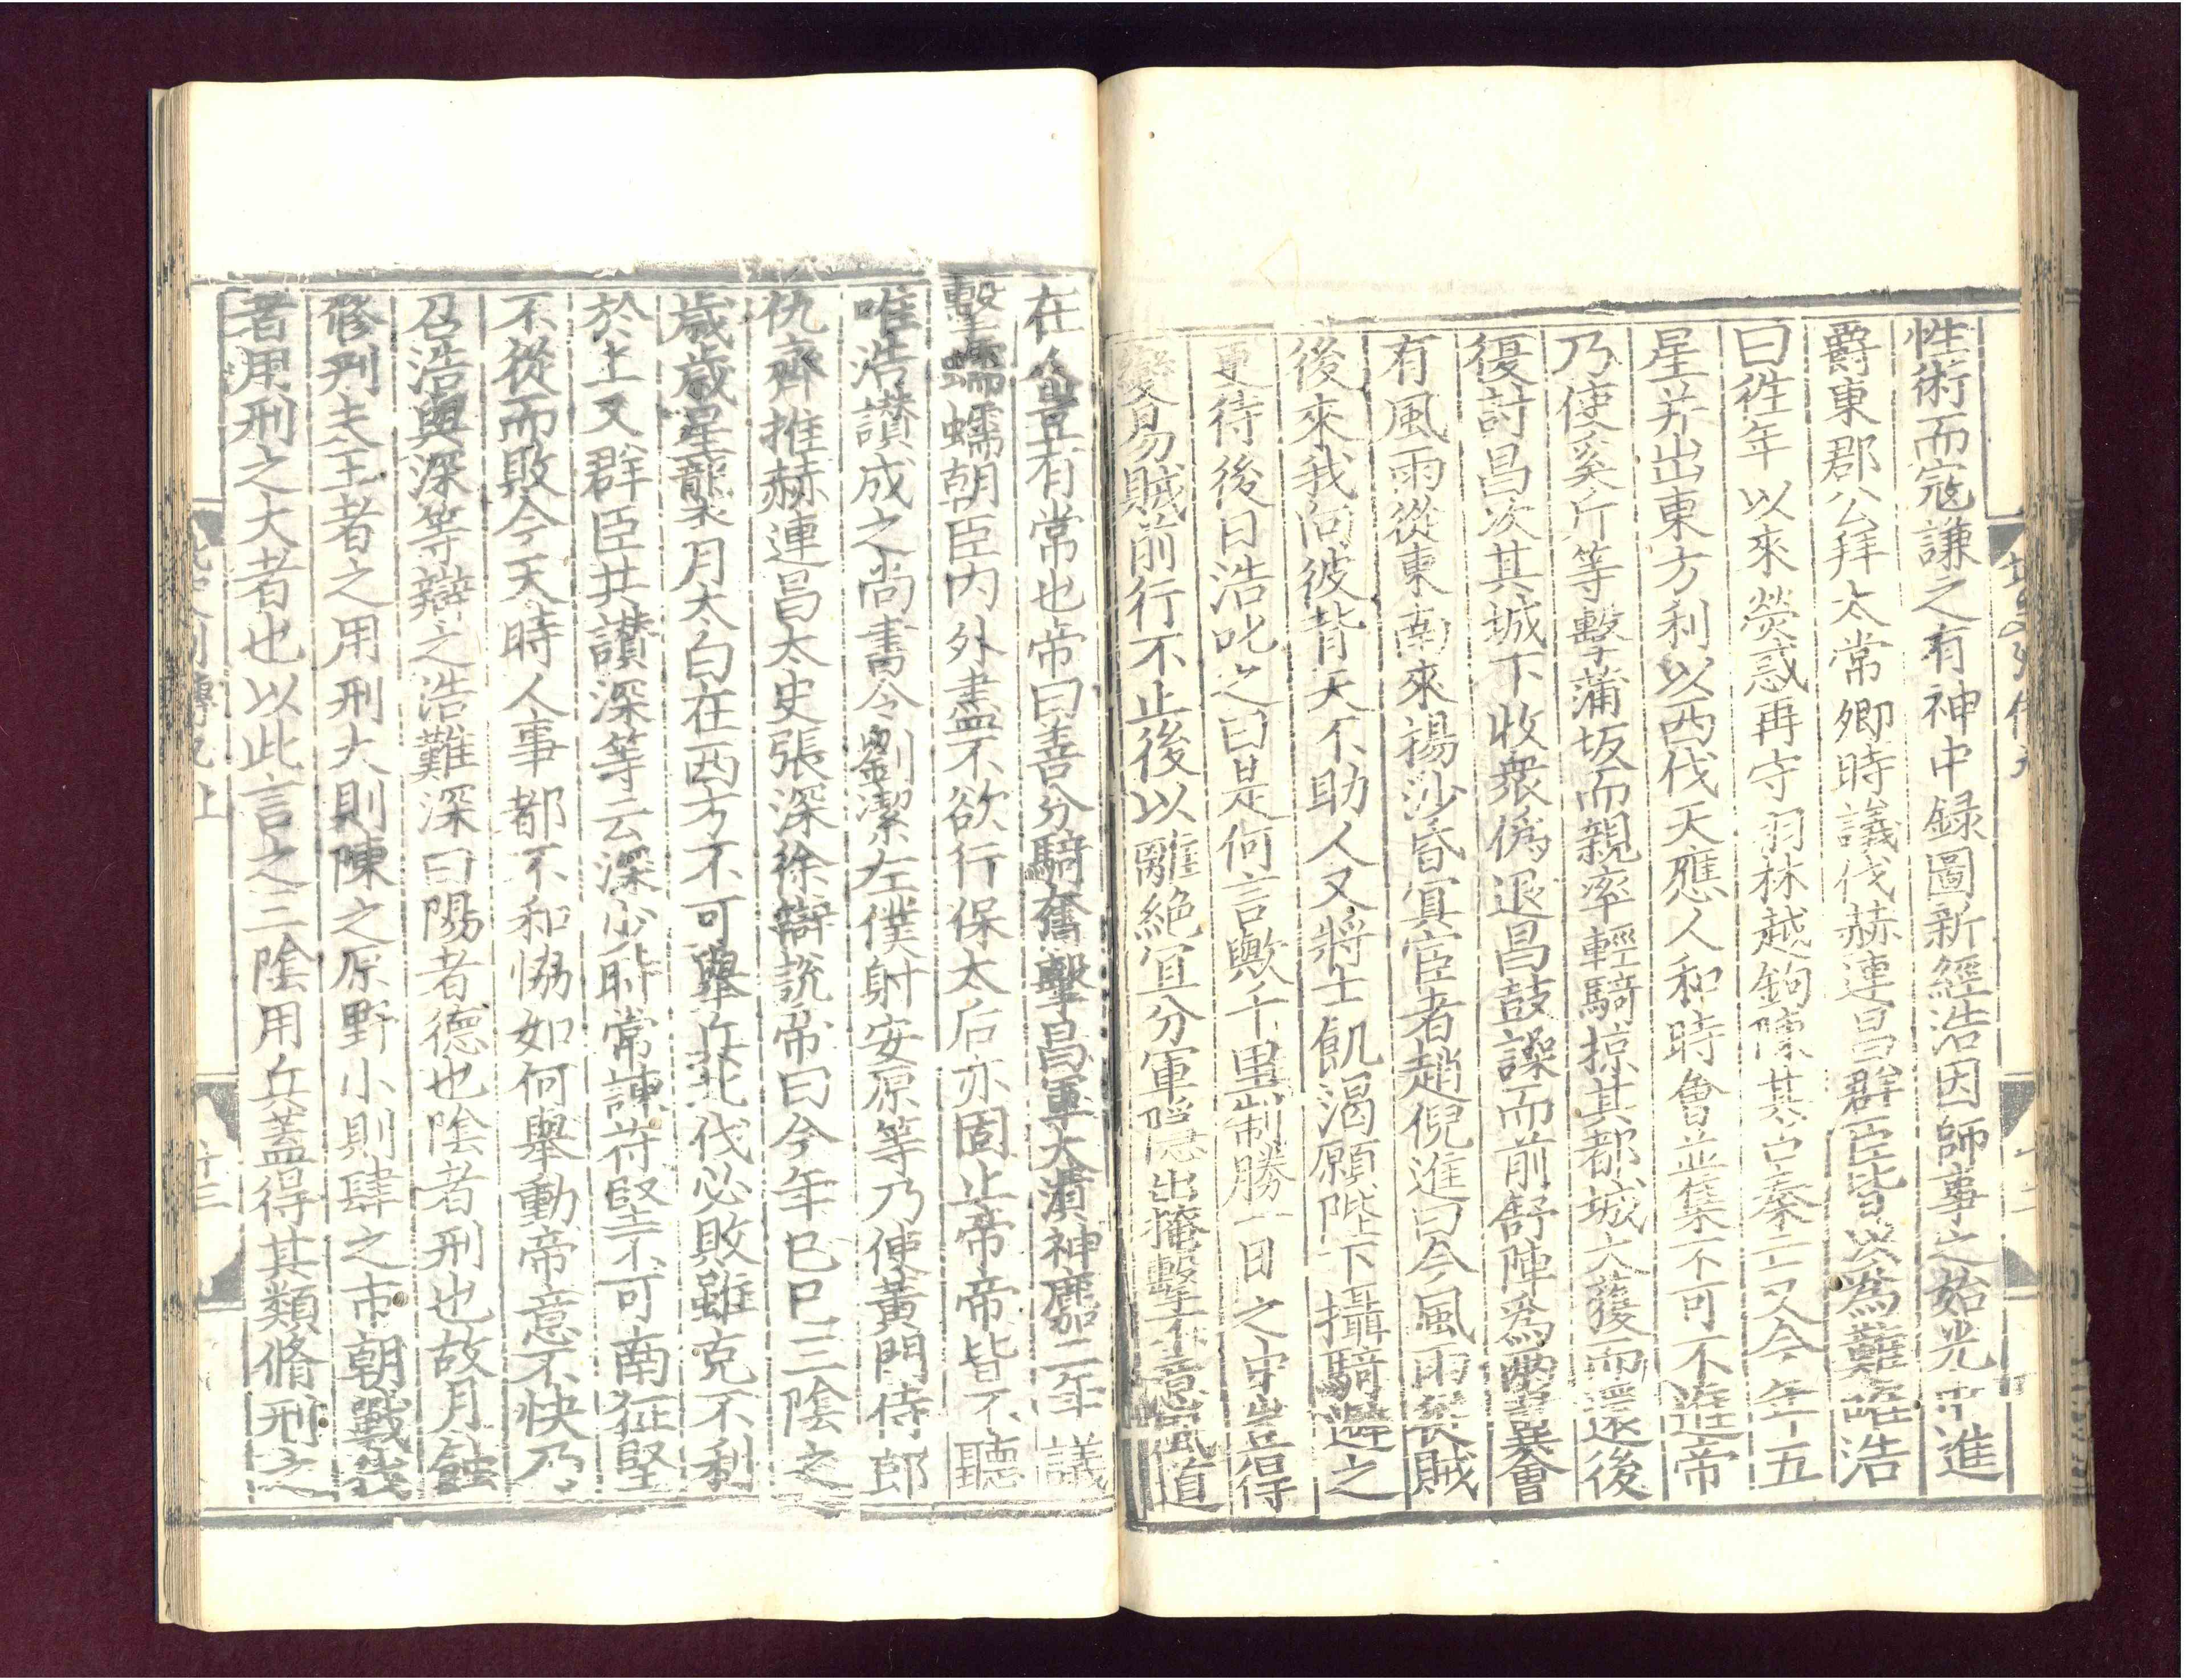 性術而寇謙之有神中録圖新經浩因師事之始光中進
爵東郡公拜太常卿時議伐赫連昌群臣皆以為難唯浩
曰徃年以來熒惑再守羽林越鉤陳其占秦亡又今年五
星并出東方利以西伐天應人和時會並集不可不進帝
乃使奚斤等擊蒲坂而親率輕騎掠其都城大獲而還後
復討昌次其城下收衆僞退昌鼓譟而前舒陣爲兩翼會
有風雨從東南來揚沙昏冥宦者趙倪進曰今風雨從賊
後來我向彼背天不助人又將士飢渴願陛下攝騎避之
更待後日浩叱之曰是何言歟千里制勝一日之中豈得
變易賊前行不止後以離絶宜分軍隱出掩擊不意風道
在人豈有常也帝曰善分騎奮擊昌軍大潰神䴥二年議
擊蠕蠕朝臣内外盡不欲行保太后亦固止帝帝皆不聽
唯浩讃成之尚書令劉潔左僕射安原等乃使黃門侍郎
仇齊推赫連昌太史張深徐辯説帝曰今年己巳三陰之
歲歲星襲月太白在西方不可舉兵北伐必敗雖克不利
於上又群臣共讃深等云深少時常諫苻堅不可南征堅
不從而敗今天時人事都不和協如何舉動帝意不快乃
召浩與深等辯之浩難深曰陽者德也陰者刑也故月蝕
修刑夫王者之用刑大則陳之原野小則肆之市朝戰伐
者用刑之大者也以此言之三陰用兵蓋得其類脩刑之